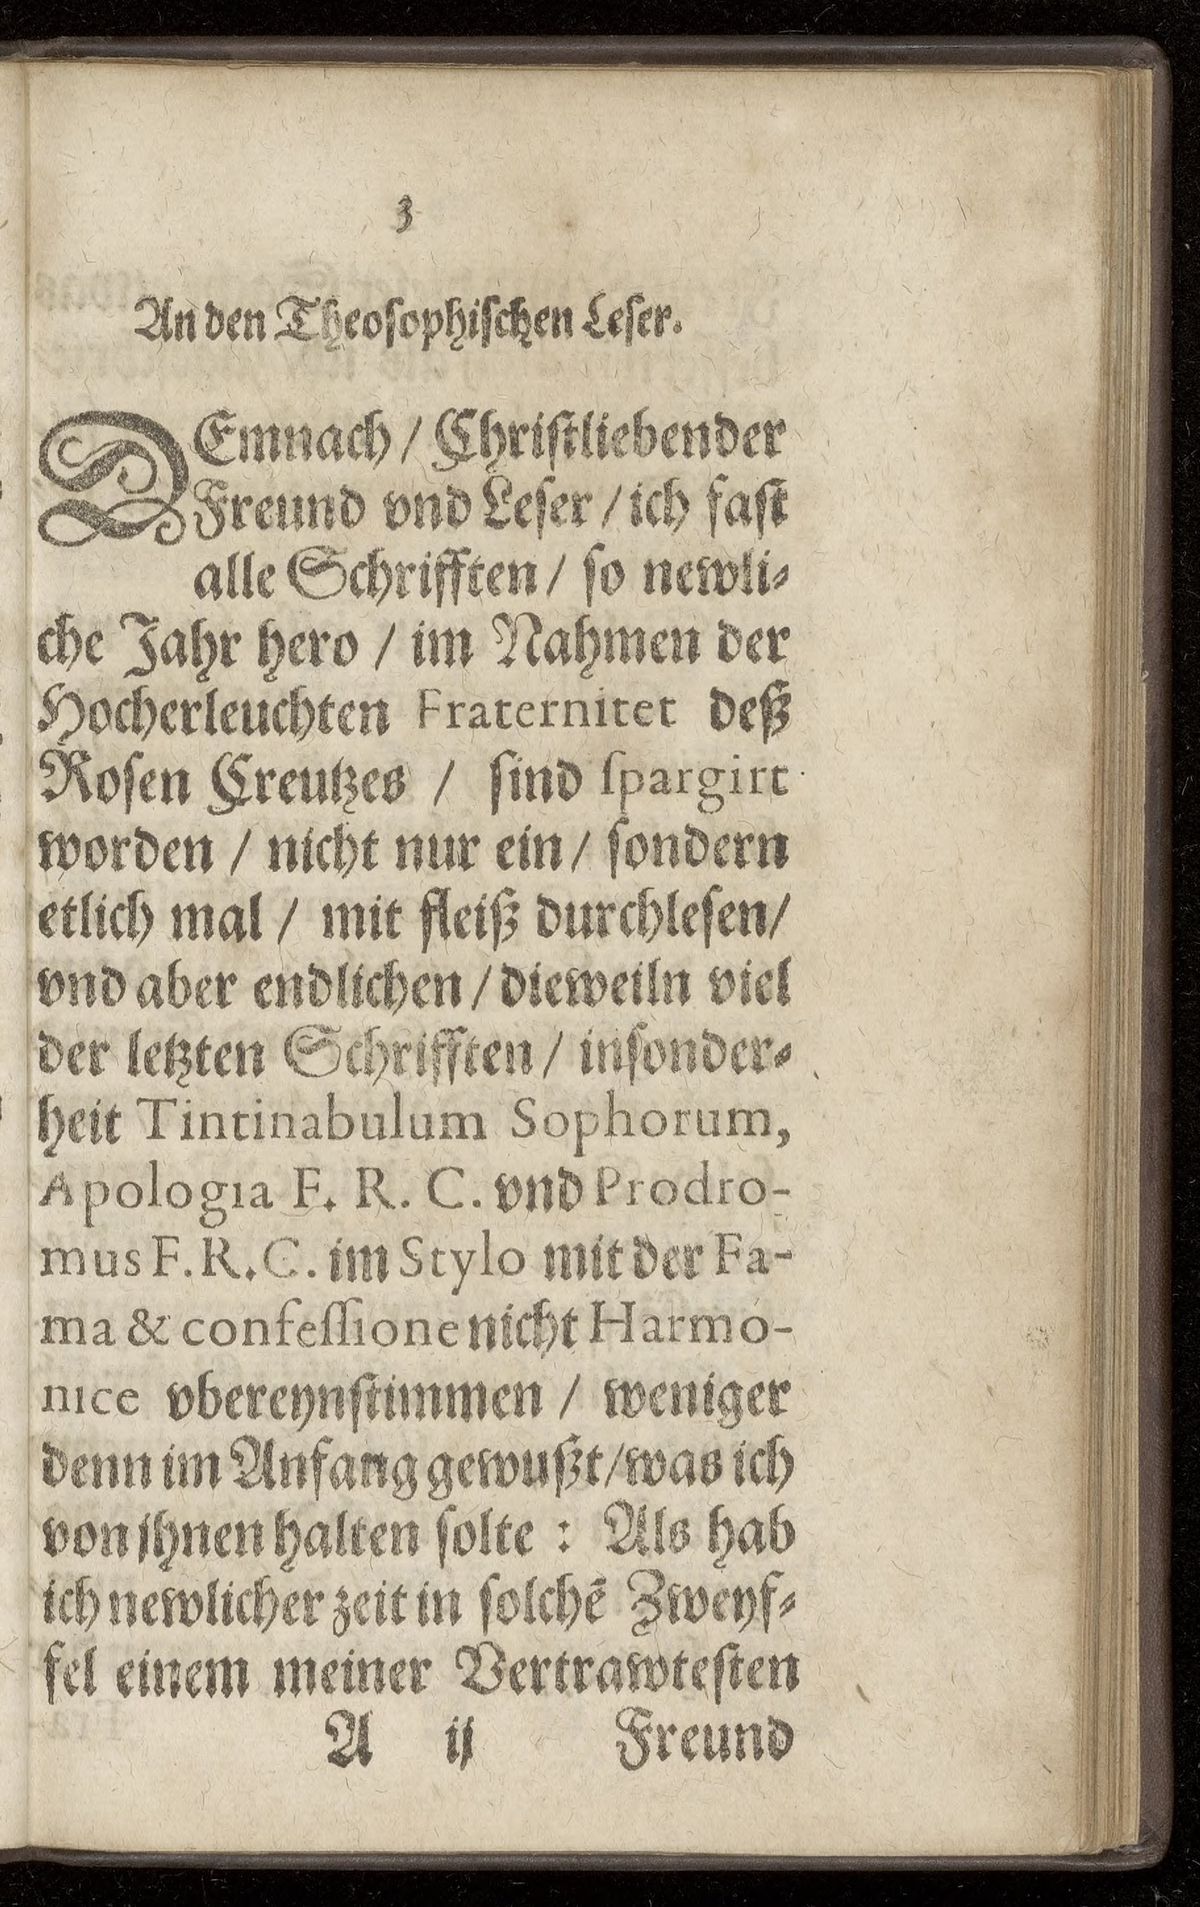 3
An den Theosophischen Leser.
DEmnach / Christliebender
Freund vnd Leser / ich fast
alle Schrifften / so newli⸗
che Jahr hero / im Nahmen der
Hocherleuchten Fraternitet deß
Rosen Creutzes / sind spargirt
worden / nicht nur ein / sondern
etlich mal / mit fleiß durchlesen /
vnd aber endlichen / dieweiln viel
der letzten Schrifften / insonder⸗
heit Tintinabulum Sophorum,
Apologia F. R. C. vnd Prodro-
mus F. R. C. im Stylo mit der Fa-
ma & confessione nicht Harmo-
nice vbereynstimmen / weniger
denn im Anfang gewußt / was ich
von jhnen halten solte : Als hab
ich newlicher zeit in solchē Zweyf⸗
fel einem meiner Vertrawtesten
A ij Freund